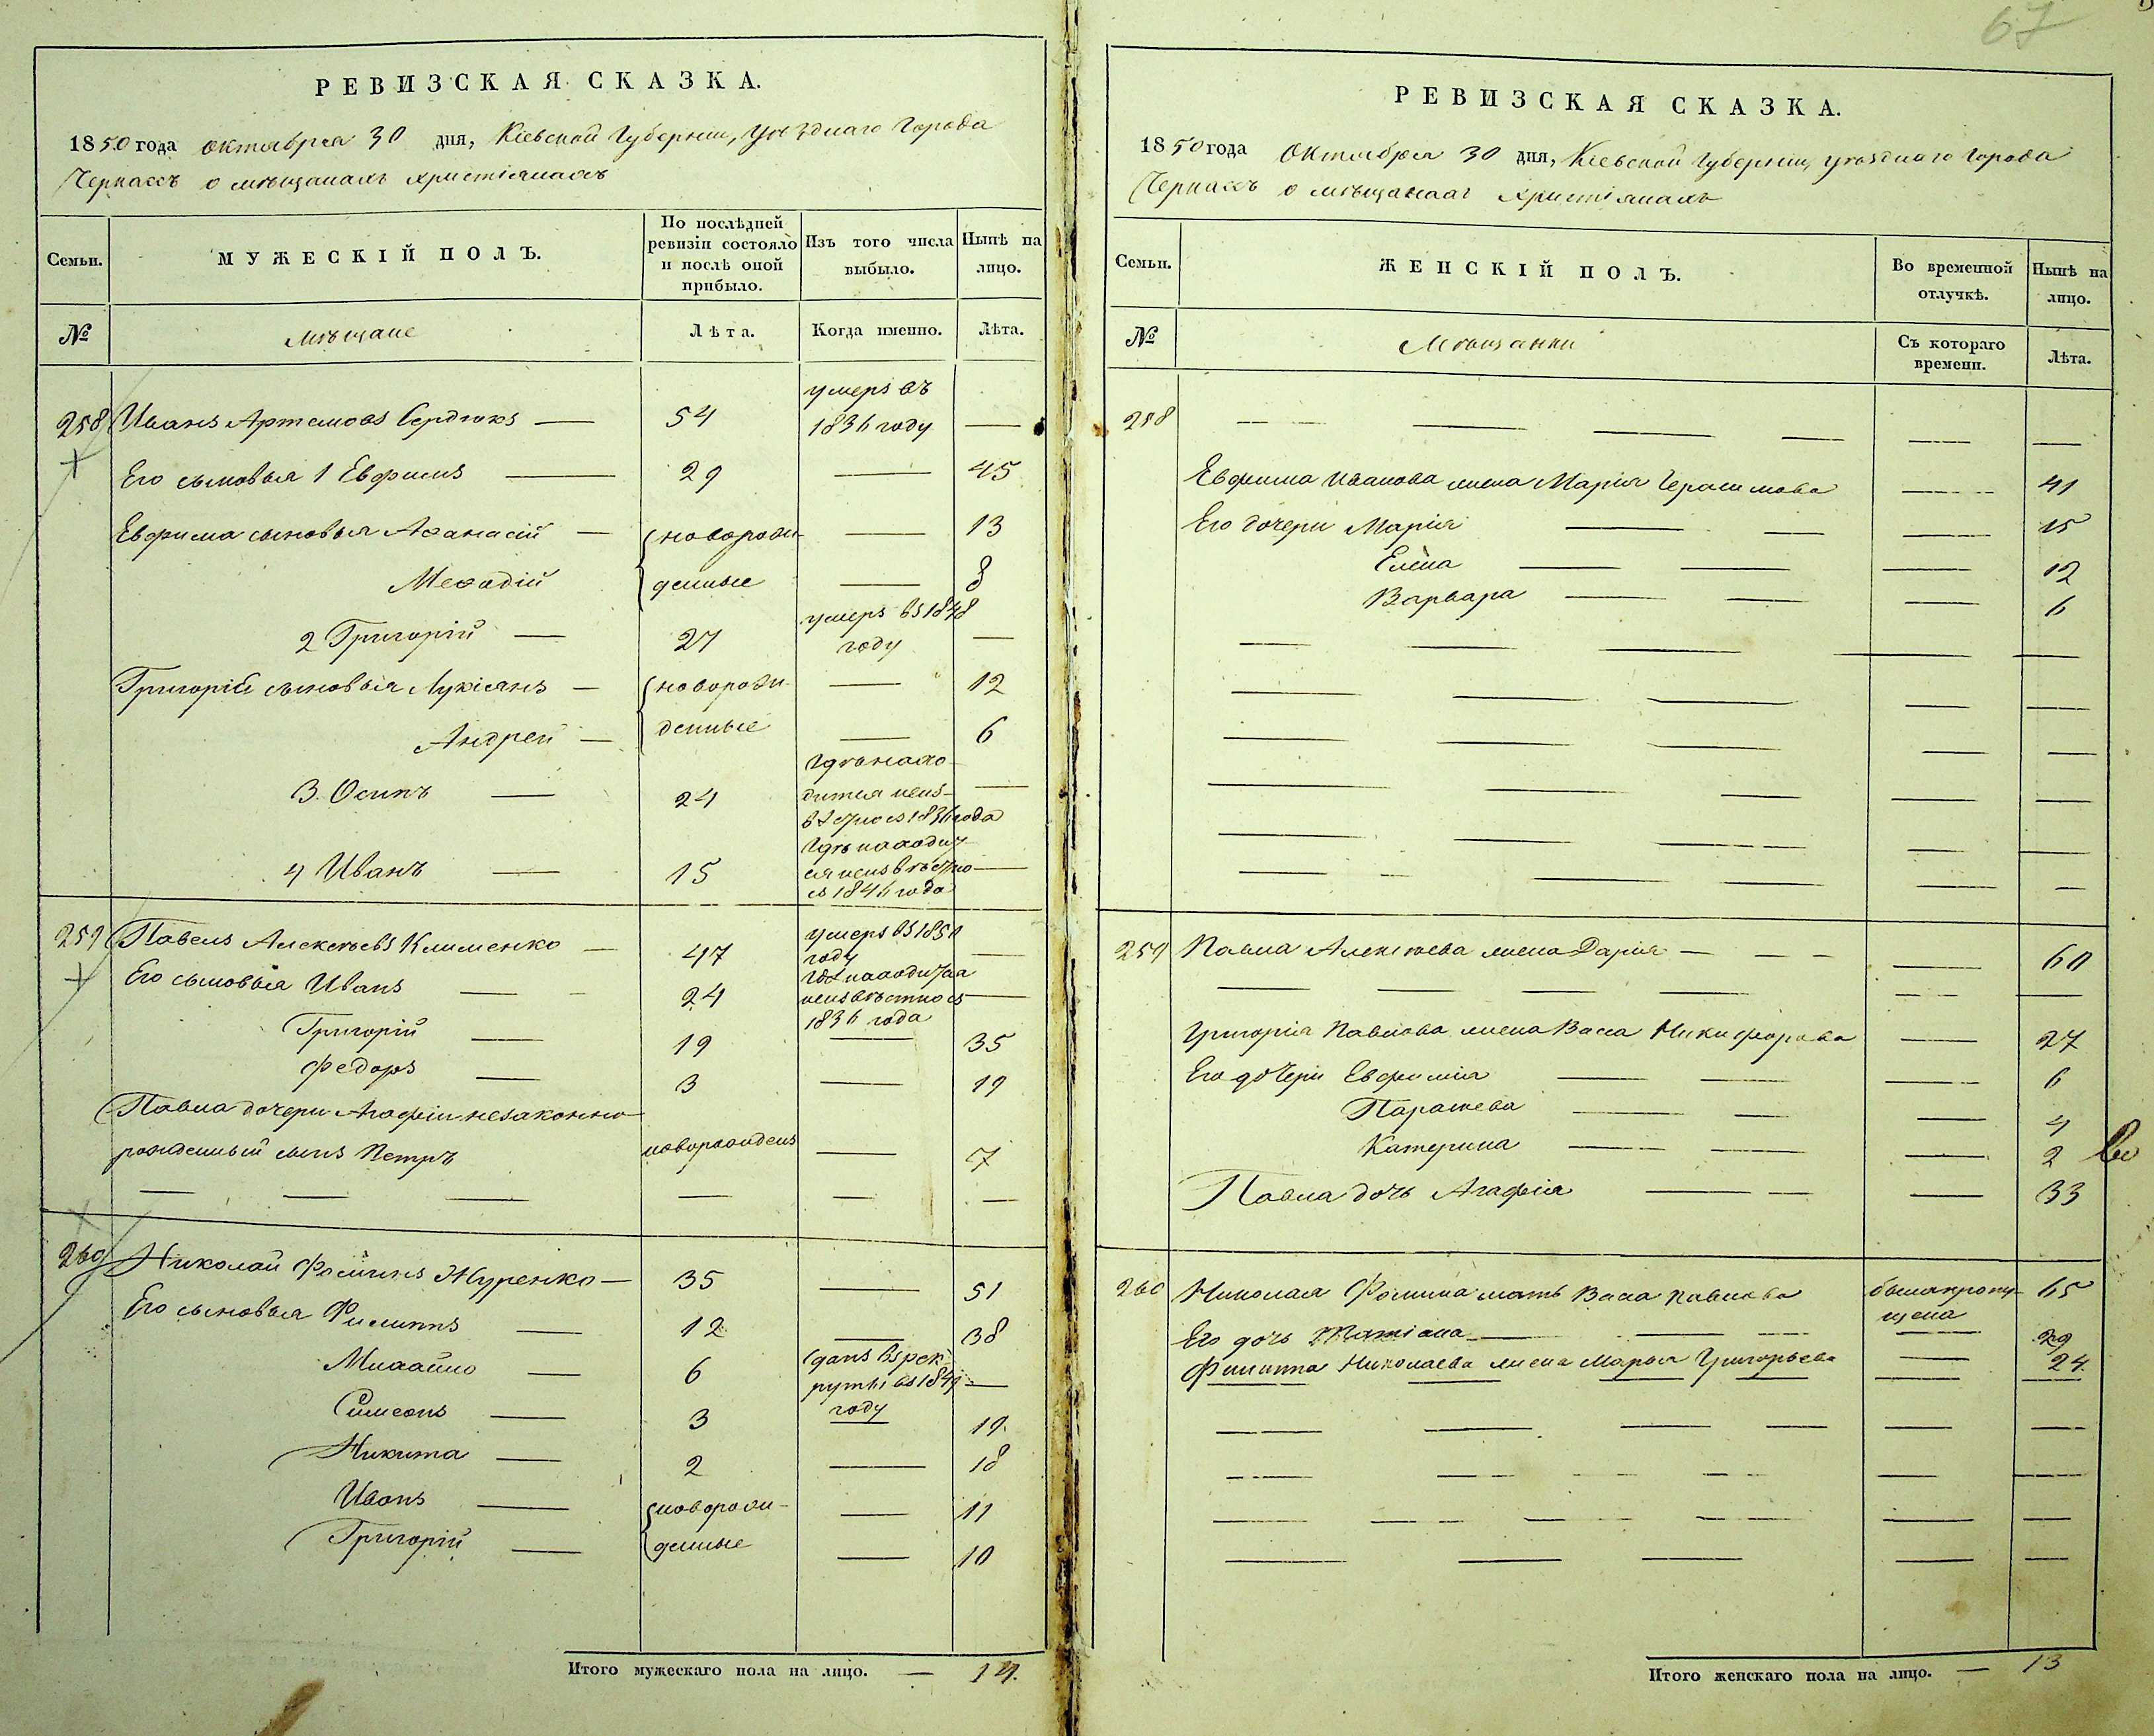 67
РЕВИЗСКАЯ СКАЗКА.
1850 года октября 30 дня, Кіевской Губерніи, уѣзднаго Города
Черкассъ о мѣщанахъ христіянахъ
Семьи. МУЖЕСКІЙ ПОЛЪ. По послѣдней ревизіи состояло и послѣ оной прибыло. Изъ того числа выбыло. Нынѣ на лицо.
№ мѣщане Лѣта. Когда именно. Лѣта.
258 Иванъ Артемовъ Сердюкъ — 54 умеръ въ 1836 году —
Его сыновья 1 Евфимъ — 29 — 45
Евфима сыновья Аѳанасій — новорожденные — 13
Меѳодій — 8
2 Григорій — 27 умеръ въ 1848 году —
Григорія сыновья Лукіянъ — новорожденные — 12
Андрей — — 6
3 Осипъ — 24 Гдѣ находится неизвѣстно съ 1836 года —
4 Иванъ — 15 Гдѣ находится неизвѣстно съ 1846 года —
259 Павелъ Алексѣевъ Клименко — 47 умеръ въ 1850 году —
Его сыновья Иванъ — 24 Гдѣ находится неизвѣстно съ 1836 года —
Григорій — 19 — 35
Федоръ — 3 — 19
Павла дочери Агафіи незаконно
рожденный сынъ Петръ новорожденъ — 7
260 Николай Фоминъ Журенко — 35 — 51
Его сыновья Филиппъ — 12 — 38
Михайло — 6 сданъ въ рекруты въ 184 году —
Симеонъ — 3 — 19
Никита — 2 — 18
Иванъ — новорожденные — 11
Григорій — — 10
Итого мужескаго пола на лицо. — 14.
РЕВИЗСКАЯ СКАЗКА.
1850 года Октября 30 дня, Кіевской Губерніи, уѣзднаго Города
Черкассъ о мѣщанахъ христіянахъ
Семьи. ЖЕНСКІЙ ПОЛЪ. Во временной отлучкѣ. Нынѣ на лицо.
№ Мѣщанки Съ котораго времени. Лѣта.
258 — — — — — —
Евфима Иванова жена Марія Герасимова — 41
Его дочери Марія — — — 15
Елена — — — 12
Варвара — — — 6
259 Павла Алексѣева жена Дарія — — — — 60
Григорія Павлова жена Васа Никифорова — 27
Его дочери Евфимія — — — 6
Параскева — — — 4
Катерина — — — 2
Павла дочь Агафія — — — 33
260 Николая Фомина мать Васа Павлова была пропущена 65
Его дочь Татіана — — — — 29
Филиппа Николаева жена Марья Григорьева — 24.
Итого женскаго пола на лицо. — 13